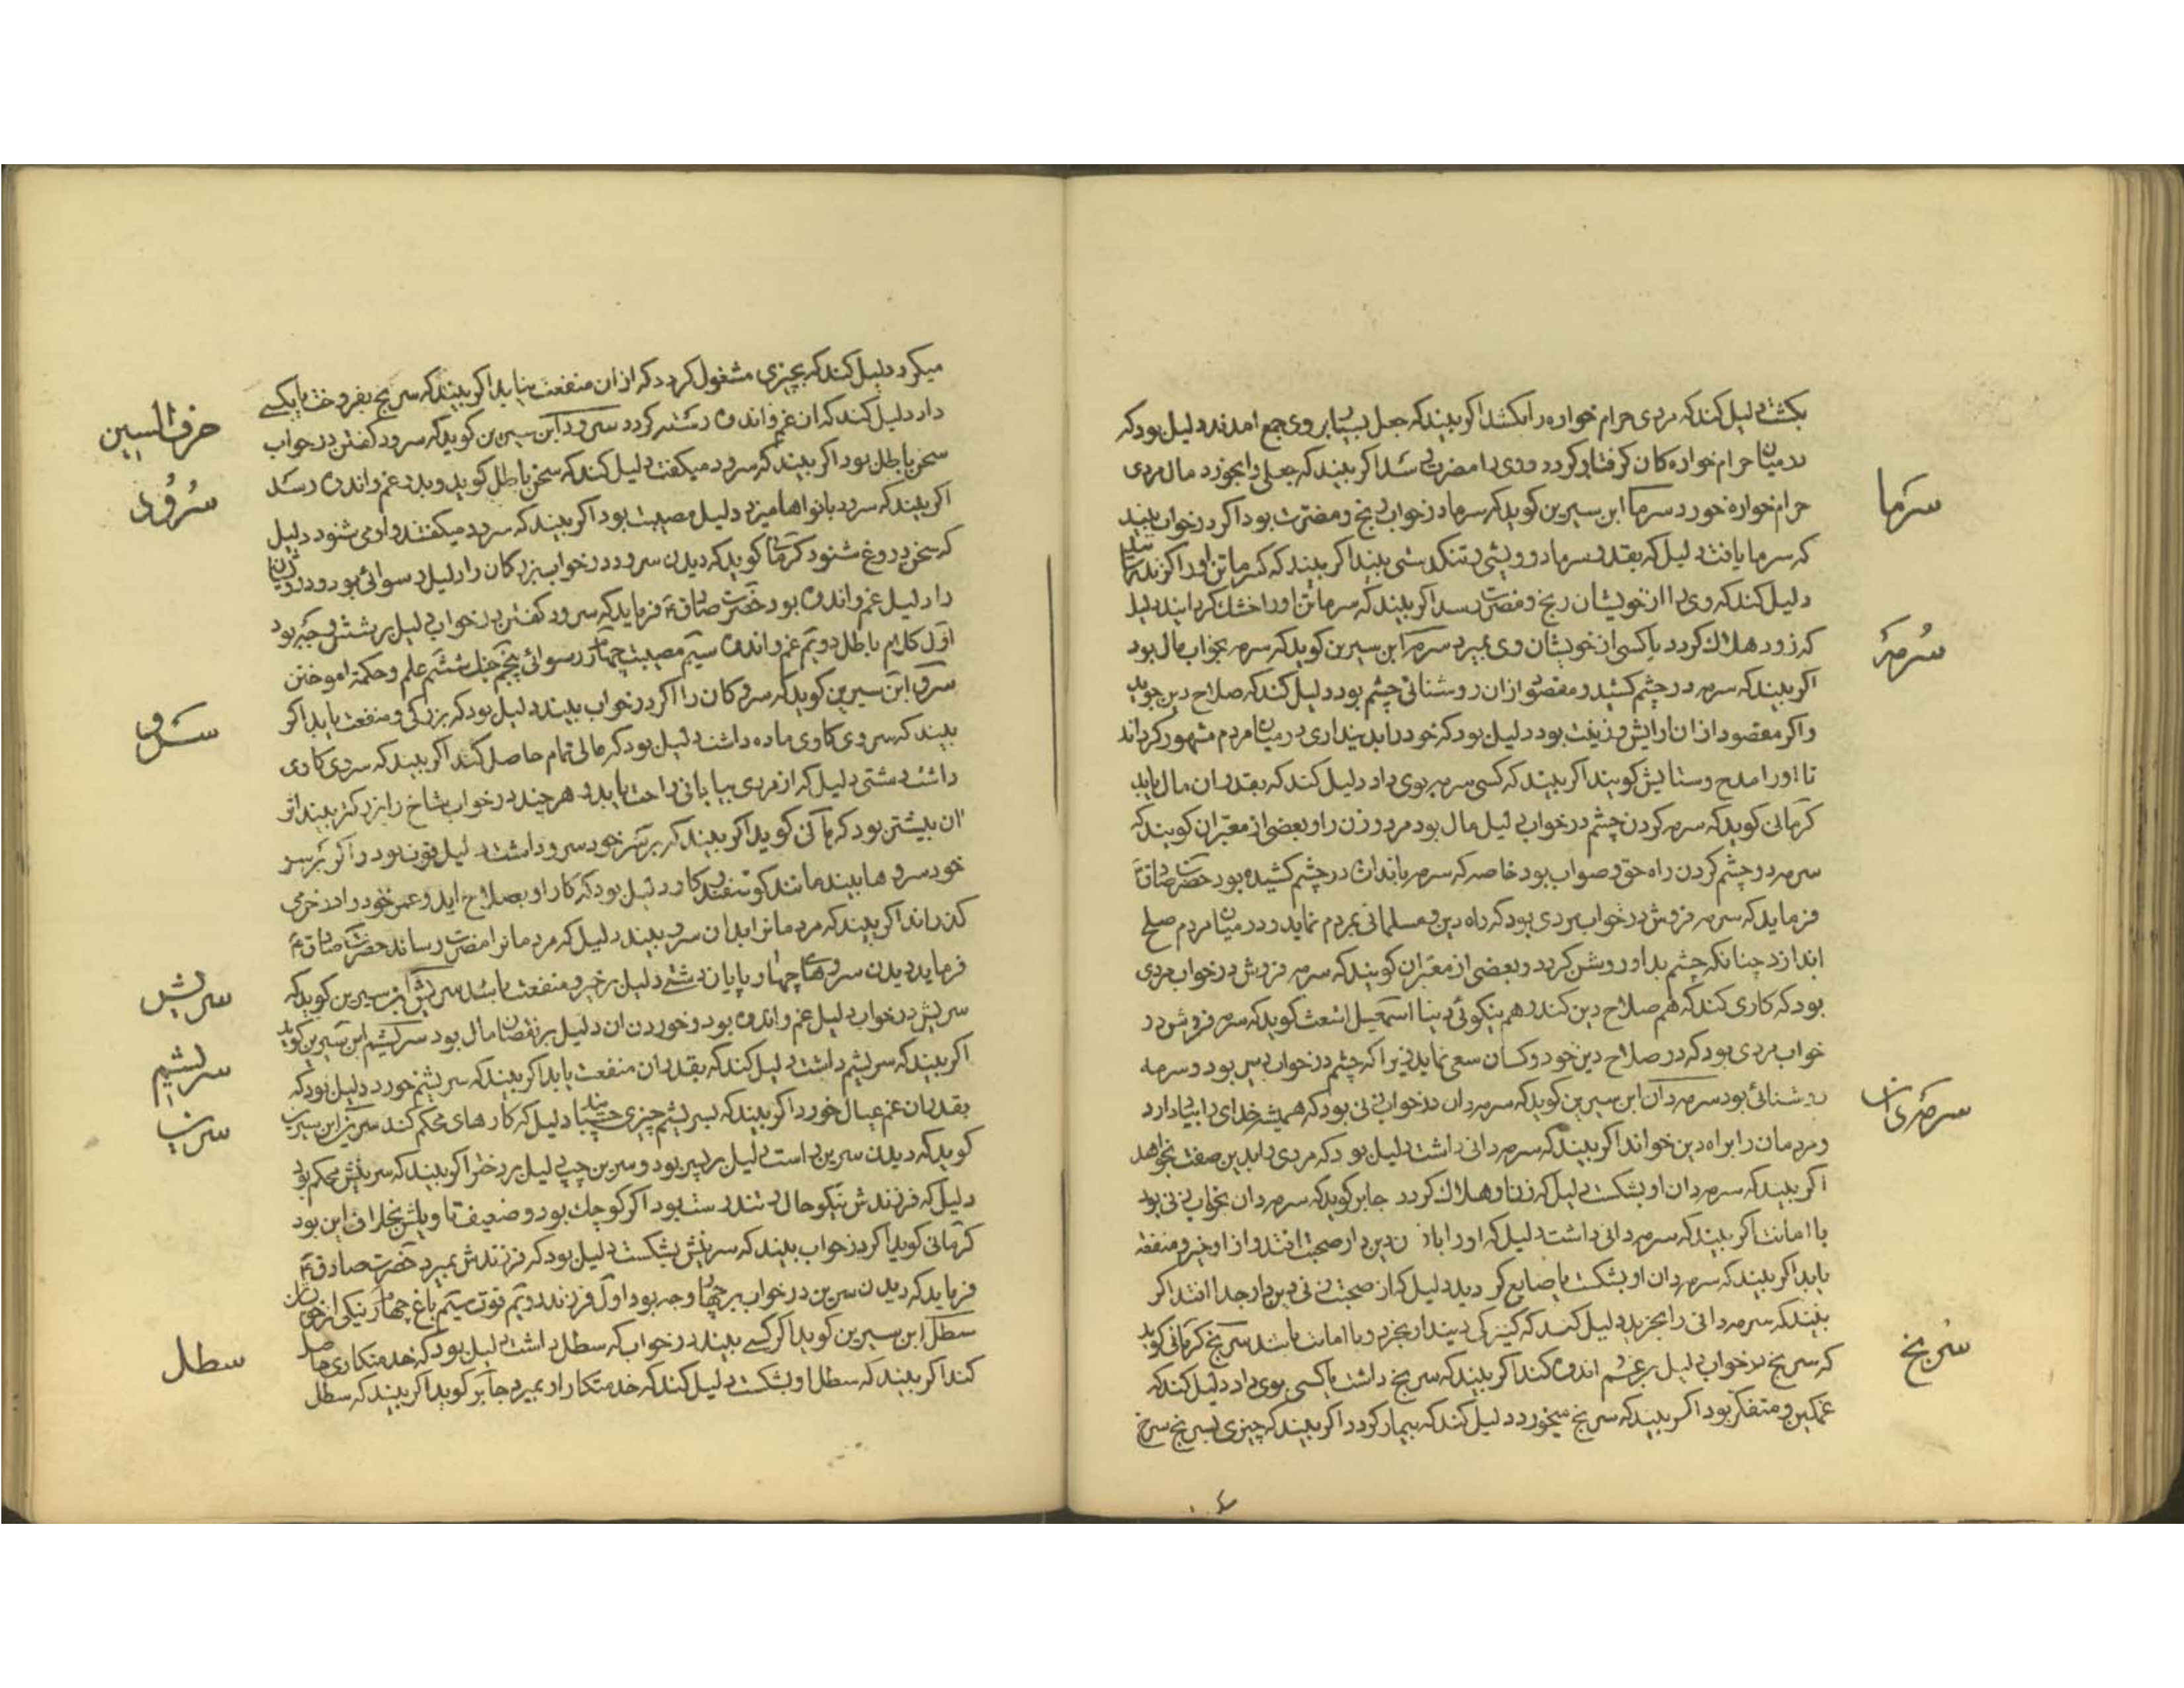 بکشت دلیل کند که مردی حرام خواره را بکشد اکر بیند که جعل بسیار بروی جمع امدند دلیل بود که
در میان حرام خواره کان کرفتار کردد و وی را مضرت رسد اکر بیند که جعلی را بخورد مال مردی
سرما
حرام خواره خورد سرما ابن سیرین کوید که سرما در خواب رنج و مضرت بود اکر در خواب بیند
که سرما یافت دلیل که بقدر سرما درویشی و تنکدستی بیند اکر بیند که
دلیل کند که وی را از خویشان رنج و مضرت رسد اکر بیند که سرما تن او را خشک کردانید دلیل
سرمه
که زود هلاک کردد یا کسی از خویشان وی بمیرد سرمه ابن سیرین کوید که سرمه بخواب مال بود
اکر بیند که سرمه در چشم کشید و مقصود از ان روشنائی چشم بود دلیل کند که صلاح دین جوید
واکر مقصود از ان ارایش و زینت بود دلیل بود که خود را بدینداری در میان مردم مشهور کرداند
تا او را مدح و ستایش کویند اکر بیند که کسی سرمه بوی داد دلیل کند که بقدر ان مال یابد
کرمانی کوید که سرمه کردن چشم در خواب دلیل مال بود مرد و زن را و بعضی از معبران کویند که
سرمه در چشم کردن راه حق و صواب بود خاصه که سرمه باندازه در چشم کشیده بود حضرت صادق
فرماید که سرمه فروش در خواب مردی بود که راه دین و مسلمانی بمردم نماید و در میان مردم صلح
اندازد چنانکه چشم بدو روشن کردد و بعضی از معبران کویند که سرمه فروش در خواب مردی
بود که کاری کند که هم صلاح دین کند و هم نیکوئی دنیا اسمعیل اشعث کوید که سرمه فروش در
خواب مردی بود که در صلاح دین خود و کسان سعی نماید زیرا که چشم در خواب دین بود و سرمه
سرمه دان
روشنائی بود سرمه دان ابن سیرین کوید که سرمه دان در خواب زنی بود که همیشه خدای را
و مردمان را براه دین خواند اکر بیند که سرمه دانی داشت دلیل بود که مردی را بدین صفت بخواهد
اکر بیند که سرمه دان او بشکست دلیل که زن او هلاک کردد جابر کوید که سرمه دان بخواب زنی بود
با امانت اکر بیند که سرمه دانی داشت دلیل که او را با زن دین دار صحبت افتد و از او خیر و منفعه
یابد اکر بیند که سرمه دان او بشکست یا ضایع کردید دلیل که از صحبت زنی دین دار جدا افتد اکر
بیند که سرمه دانی را بخرید دلیل کند که کنیزکی دیندار بخرد و با امانت باشد سرنج کرمانی کوید
سرنج
که سرنج در خواب دلیل بر غم و اندوه کند اکر بیند که سرنج داشت یا کسی بوی داد دلیل کند که
غمکین و متفکر بود اکر بیند که سرنج میخورد دلیل کند که بیمار کردد اکر بیند که چیزی بسرنج سرخ
میکرد دلیل کند که بچیزی مشغول کردد که از ان منفعت نیابد اکر بیند که سرنج بفروخت یا بکسی
حرف السین
داد دلیل کند که ان غم و اندوه رسته کردد سرود ابن سیرین کوید که سرود کفتن در خواب
سرود
سخن باطل بود اکر بیند که سرود میکفت دلیل کند که سخن باطل کوید و بدو غم و اندوه رسد
اکر بیند که سرود بانواها میزد دلیل مصیبت بود اکر بیند که سرود میکفتند و او می شنود دلیل
که سخن دروغ شنود کرمانی کوید که دیدن سرود در خواب بزرکان را دلیل رسوائی بود و درویشان
را دلیل غم و اندوه بود حضرت صادق ع فرماید که سرود کفتن در خواب دلیل بر شش وجه بود
اول کلام باطل دویم غم و اندوه سیم مصیبت چهارم رسوائی پنجم جنک ششم علم و حکمة اموختن
سرو
سرو ابن سیرین کوید که سرو کان را اکر در خواب بیند دلیل بود که بزرکی و منفعت یابد اکر
بیند که سروی کاوی ماده داشت دلیل بود که مالی تمام حاصل کند اکر بیند که سروی کاوی
داشت دشتی دلیل که از مردی بیابانی راحت یابد و هر چند در خواب شاخ را بزرکتر بیند اثر
ان بیشتر بود کرمانی کوید اکر بیند که بر سر خود سرو داشت دلیل قوت بود و اکر بر سر
خود سروها بیند مانند کوسفند و کاو دلیل بود که کار او بصلاح اید و عمر خود را در خرمی
کذراند اکر بیند که مردمانرا بدان سرو بیند دلیل که مردمانرا مضرت رساند حضرت صادق ع
سریش
فرماید دیدن سروهای چهارپایان دشتی دلیل بر خیر و منفعت باشد سریش ابن سیرین کوید که
سریش در خواب دلیل غم و اندوه بود و خوردن ان دلیل بر نقصان مال بود سریشم ابن سیرین کوید
سریشم
اکر بیند که سریشم داشت دلیل کند که بقدر ان منفعت یابد اکر بیند که سریشم خورد دلیل بود که
سرین
بقدر ان غم عیال خورد اکر بیند که بسریشم چیزی چسپانید دلیل که کارهای محکم کند سرین ابن سیرین
کوید که دیدن سرین راست دلیل بر پسر بود و سرین چپ دلیل بر دختر اکر بیند که سرینش محکم بود
دلیل که فرزندش نیکو حال و تندرست بود اکر کوچک بود و ضعیف تاویلش بخلاف این بود
کرمانی کوید اکر در خواب بیند که سرینش بشکست دلیل بود که فرزندش بمیرد حضرت صادق ع
فرماید که دیدن سرین در خواب بر چهار وجه بود اول فرزند دویم قوت سیم باغ چهارم نیکی از خویشان
سطل
سطل ابن سیرین کوید اکر کسی بیند در خواب که سطل داشت دلیل بود که خدمتکاری حاصل
کند اکر بیند که سطل او بشکست دلیل کند که خدمتکار او بمیرد جابر کوید اکر بیند که سطل